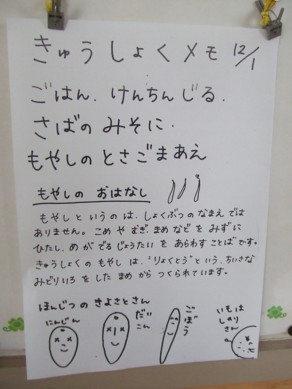 きゅうしょくメモ 12/1
ごはん．けんちんじる．
さばの みそに．
もやしのとさごまあえ
もやしの おはなし
もやしと いうの は、しょくぶつの なまえ では
ありません。こめ や むぎ、まめ などを みずに
ひたし、め が でる じょうたい を あらわす ことば です。
きゅうしょくの もやし は、"りょくとう" と いう、ちいさな
みどりいろ を した まめ から つくられています。
ほんじつの きよさとさん
にんじん
だいこん
ごぼう
いもは
さん